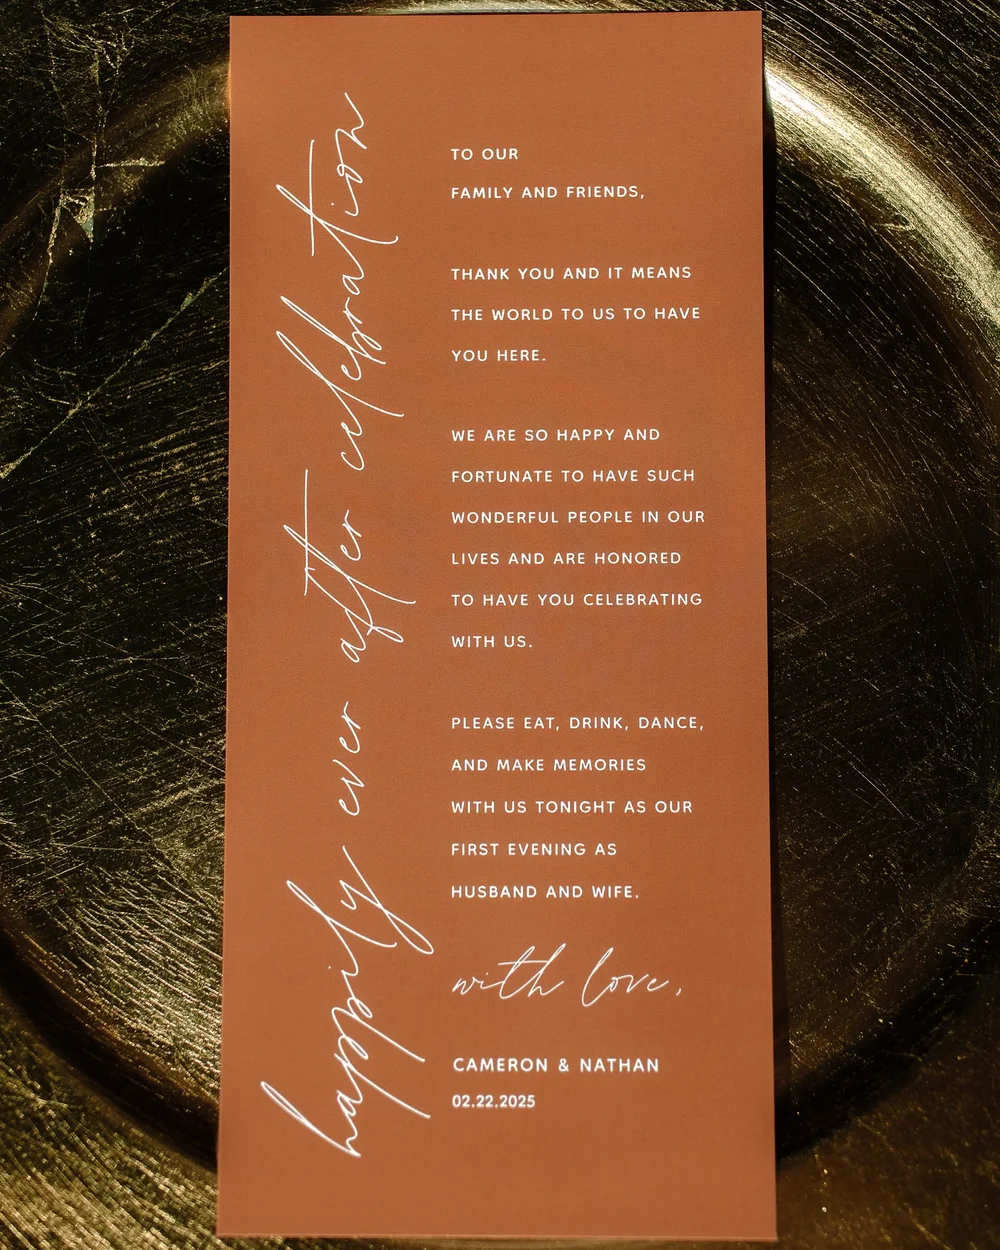 happily ever after celebration
TO OUR
FAMILY AND FRIENDS,
THANK YOU AND IT MEANS
THE WORLD TO US TO HAVE
YOU HERE.
WE ARE SO HAPPY AND
FORTUNATE TO HAVE SUCH
WONDERFUL PEOPLE IN OUR
LIVES AND ARE HONORED
TO HAVE YOU CELEBRATING
WITH US.
PLEASE EAT, DRINK, DANCE,
AND MAKE MEMORIES
WITH US TONIGHT AS OUR
FIRST EVENING AS
HUSBAND AND WIFE.
with love,
CAMERON & NATHAN
02.22.2025